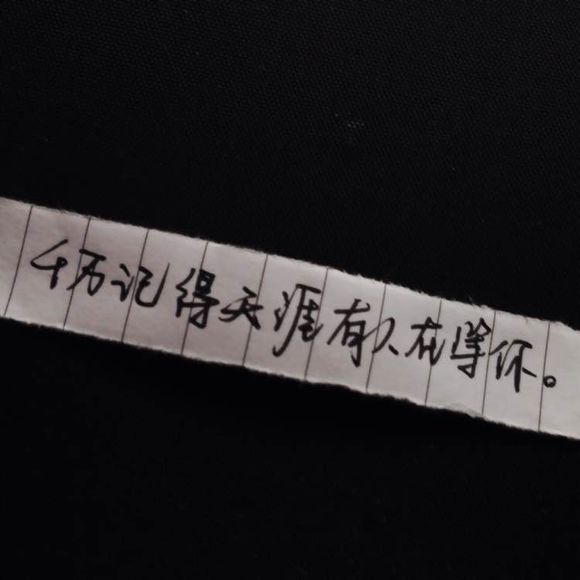 千万记得天涯有人在等你。